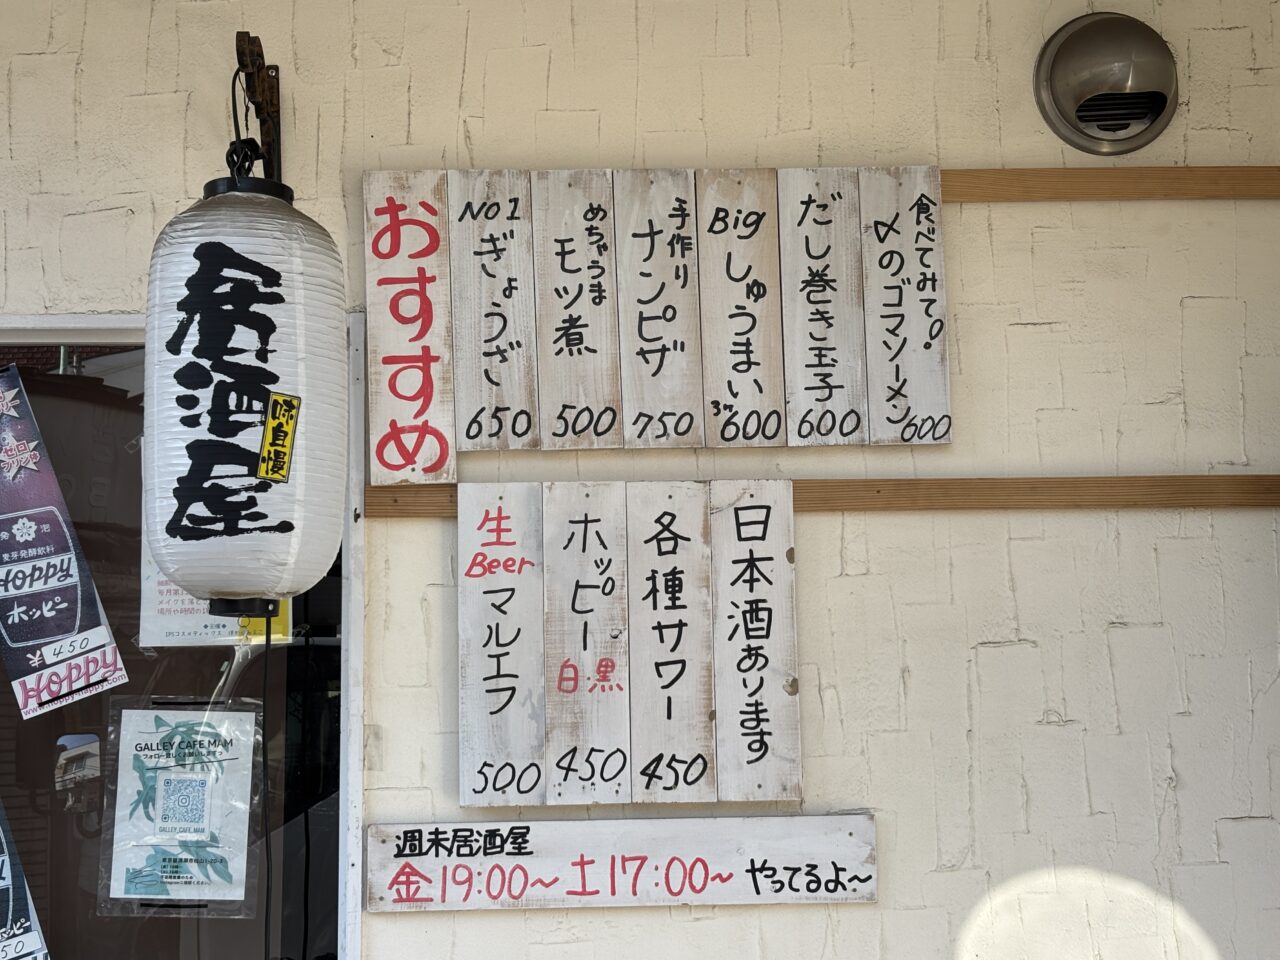 居酒屋
味自慢
おすすめ
No1
ぎょうざ
650
めちゃうま
モツ煮
500
手作り
ナンピザ
750
Big
しゅうまい
3ヶ
600
だし巻き玉子
600
食べてみて!
〆のゴマソーメン
600
生
Beer
マルエフ
500
ホッピー
白・黒
450
各種サワー
450
日本酒あります
週末居酒屋
金19:00〜土17:00〜やってるよ〜
ゼロ
プリン体
麦芽発酵飲料
Hoppy
ホッピー
450
Hoppy
www.hoppy-happy.com
GALLEY CAFE MAM
フォロー宜しくお願いしますっ
GALLEY_CAFE_MAM